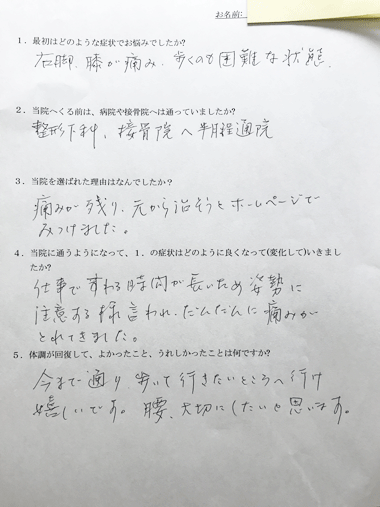 お名前:
1．最初はどのような症状でお悩みでしたか?
右脚、膝が痛み、歩くのも困難な状態。
2．当院へくる前は、病院や接骨院へは通っていましたか?
整形外科、接骨院へ半月程通院
3．当院を選ばれた理由はなんでしたか？
痛みが残り、元から治そうとホームページで
みつけました。
4．当院に通うようになって、1．の症状はどのように良くなって(変化して)いきまし
たか?
仕事ですわる時間が長いため姿勢に
注意する様言われ、だんだんに痛みが
とれてきました。
5．体調が回復して、よかったこと、うれしかったことは何ですか?
今まで通り、歩いて行きたいところへ行け
嬉しいです。腰、大切にしたいと思います。